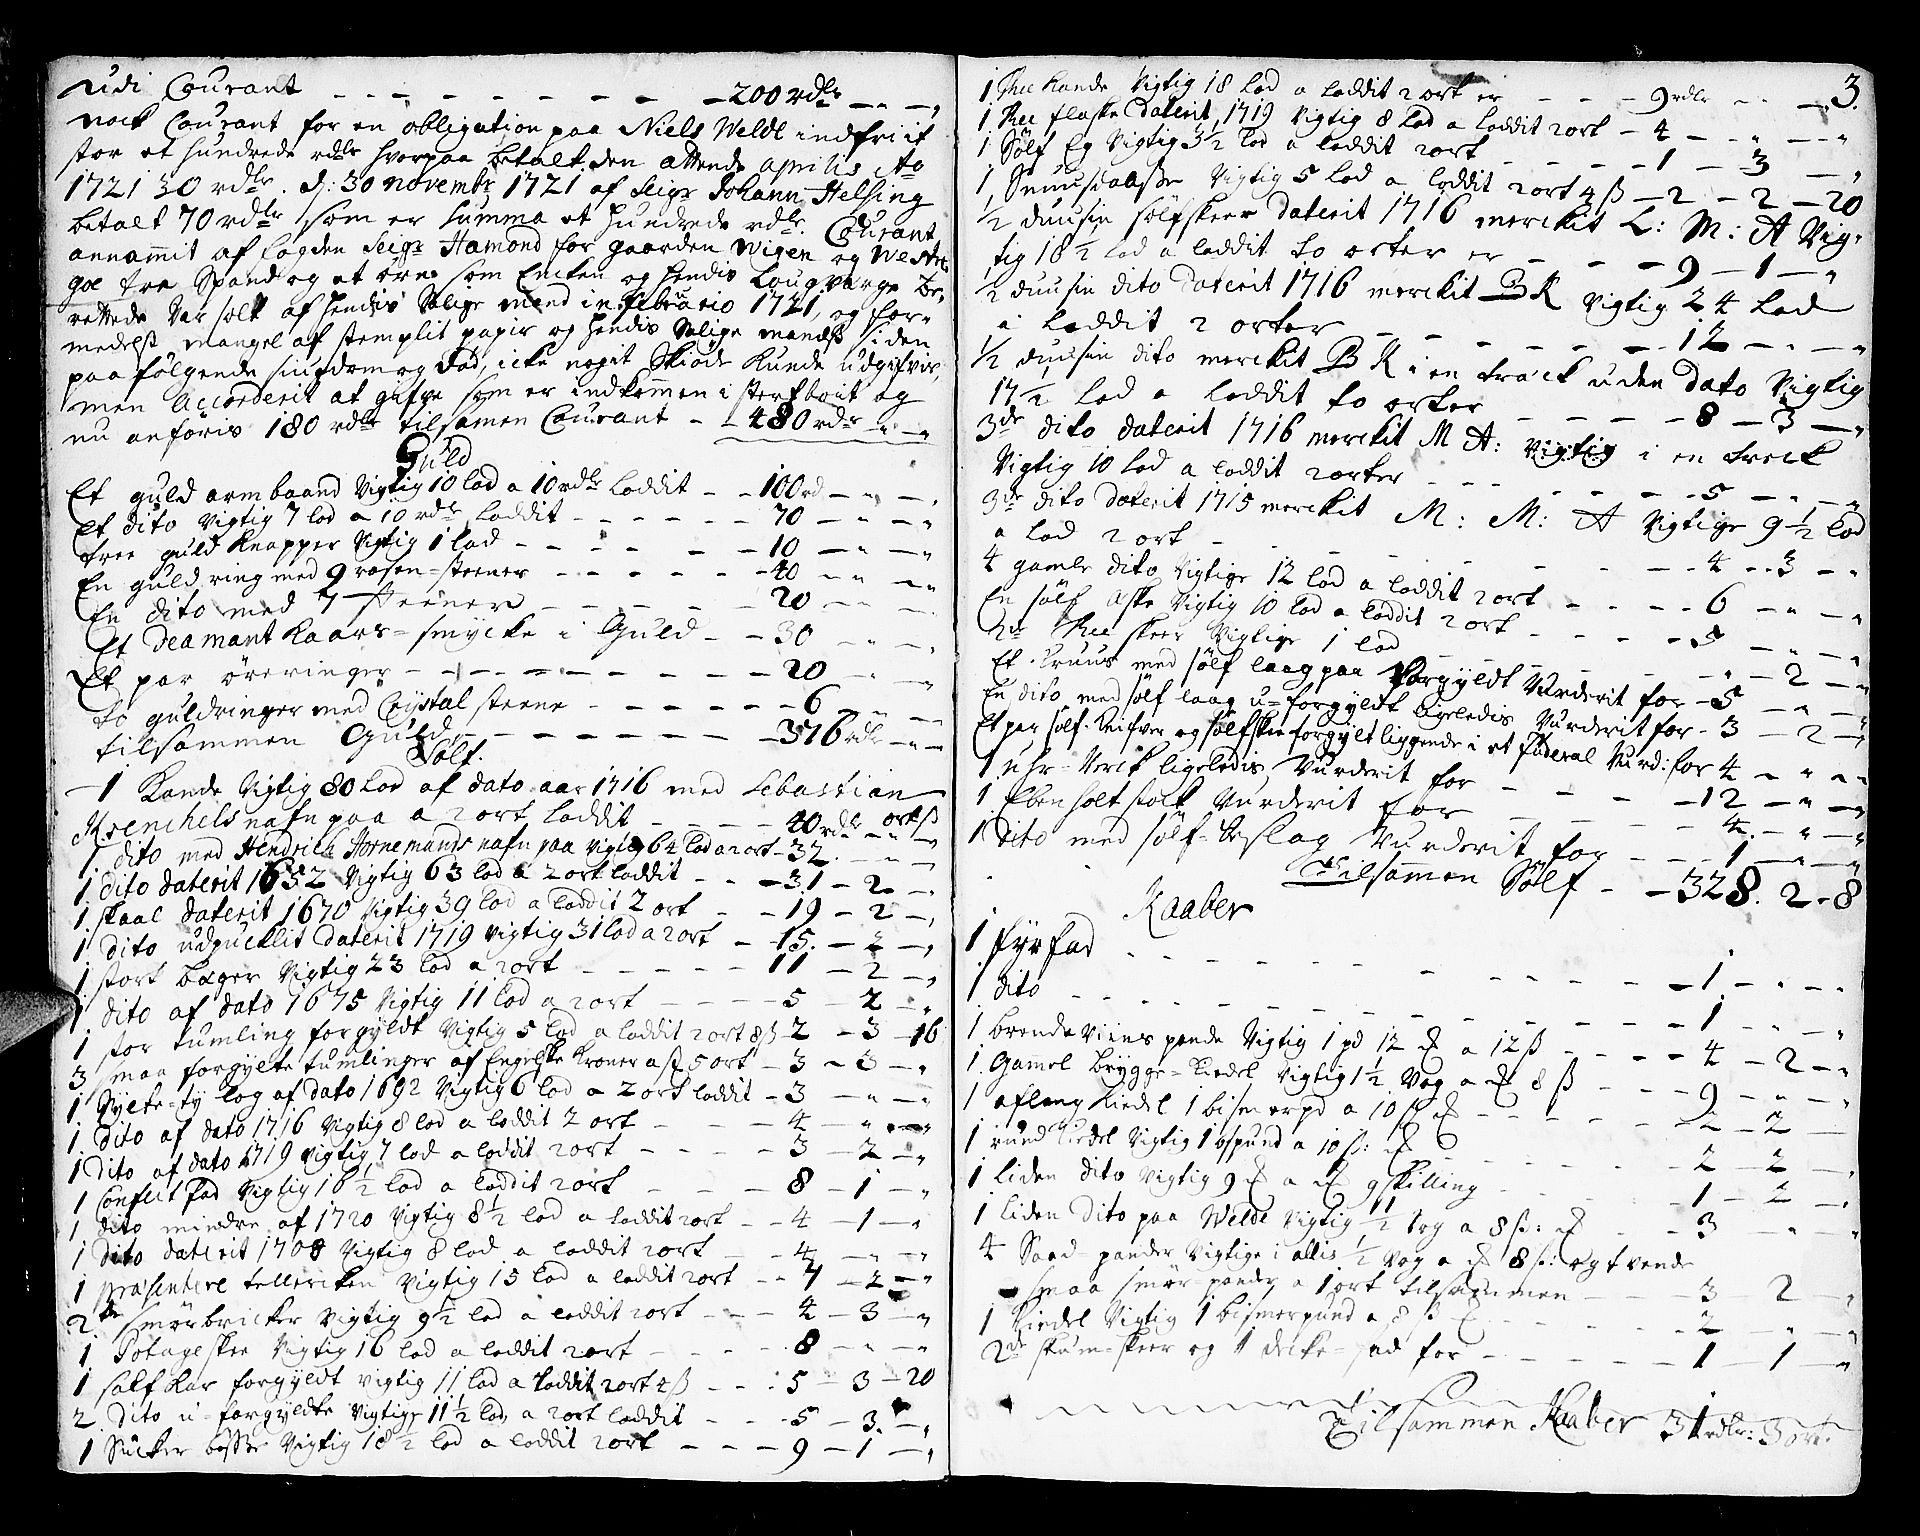 udi Courant — — — 200 rdlr — „ — „
nock Courant for en obligation paa Niels Welde indfriit
stor et hundrede rdlr hvorpaa betalt den attende aprilis Ao
1721 30 rdlr. d: 30 novembr 1721 af Seigr Johann Helsing
betalt 70 rdlr som er Summa et hundrede rdlr. Courant
annammit af fogden Seigr Hamond for gaarden Wigen og Westre
goe fra Spand og et øre som Encken og hendis Laugvarge be„
rettede var solt af hendis Salige mand in Februario 1721, og for„
medelst mangel af stemplit papir og hendis Salige mands siden
paa følgende siugdom og död, icke nogit Skiøde kunde udgifvis,
men accorderit at gifve som er indkommen i sterfboit og
nu anføris 180 rdlr tilsamen Courant — 480 rdr „ — „
Guld
Et guld armbaand Vigtig 10 lod a 10 rdlr Loddit — 100 rd — „ — „
Et dito Vigtig 7 lod a 10 rdlr Loddit — 70 — „ — „
tree guld knapper Vigtig 1 lod — 10 — „ — „
En guld ring med 9 rosen=steener — 40 — „ — „
En dito med 7 steener — 20 — „ — „
Et deamant kaars=smycke i Guld — 30 — „ — „
Et par öreringer — 20 — „ — „
to guldringer med Crystal steene — 6 — „ — „
tilsammen Guld — 316 rdlr — „ — „
Sölf.
1 Kande Vigtig 80 Lod af dato aar 1716 med Sebastian
nafn paa a 2 ort Loddit — 40 rdlr „ ort „ ß
1 dito med Hendrich Hornemands nafn paa Vigtig 64 lod a 2 ort — 32. — „ — „
1 dito daterit 1652 Vigtig 63 lod a 2 ort loddit — 31 — 2 — „
1 skaal daterit 1670 Vigtig 39 lod a loddit 2 ort — 19 — 2 — „
1 dito udpucklit daterit 1719 Vigtig 31 lod a 2 ort — 15. — 2 — „
1 stort bæger Vigtig 23 lod a 2 ort — 11 — 2 — „
1 dito af dato 1675 Vigtig 11 lod a 2 ort — 5 — 2 — „
1 stor tumling forgyldt Vigtig 5 lod a loddit 2 ort 8 ß — 2 — 3 — 16
3 smaa forgylte tumlinger af Engelske Kroner a st. 5 ort — 3 — 3 — „
1 Sylte=ty log af dato 1692 Vigtig 6 lod a 2 ort loddit — 3 — „ — „
1 dito af dato 1716 Vigtig 8 lod a loddit 2 ort — 4 — „ — „
1 dito af dato 1719 Vigtig 7 lod a loddit 2 ort — 3 — 2 — „
1 Confeit fad Vigtig 16 ½ lod a loddit 2 ort — 8 — 1 — „
1 dito mindre af 1720 Vigtig 8 ½ lod a loddit 2 ort — 4 — 1 — „
1 dito daterit 1708 Vigtig 8 lod a loddit 2 ort — 4 — „ — „
1 præsentere tellericken Vigtig 15 lod a loddit 2 ort — 7 — 2 — „
2de smörbricker Vigtig 9 ½ lod a loddit 2 ort — 4 — 3 — „
1 Potageskee Vigtig 16 lod a loddit 2 ort — 8 — „ — „
1 salt kar forgyldt Vigtig 11 lod a loddit 2 ort 4 ß — 5 — 3 — 20
2 dito u=forgyldte Vigtige 11 ½ lod a 2 ort loddit — 5 — 3. — „
1 Sücker bösse Vigtig 18 ½ lod a loddit 2 ort — 9 — 1 — „
3.
1 Thee kande Vigtig 18 lod a loddit 2 ort er — 9 rdlr — „ — „
1 Thee flaske daterit 1719 Vigtig 8 lod a loddit 2 ort — 4 — „ — „
1 Sölf Eg Vigtig 3 ½ lod a loddit 2 ort — 1 — 3 — „
1 Snuusdaasse Vigtig 5 lod a loddit 2 ort 4 ß — 2 — 2 — 20
½ duusin sölfskeer daterit 1716 merckit L: M: A Vig„
tig 18 ½ lod a loddit to orter er — 9 — 1 — „
½ duusin dito daterit 1716 merckit B K Vigtig 24 lod
a loddit 2 orter — 12 — „ — „
½ duusin dito merckit B K i en træck uden dato Vigtig
17 ½ lod a loddit to orter — 8 — 3 — „
3de dito daterit 1716 merckit M A: Vigtig i en treck
Vigtig 10 lod a loddit 2 orter — 5 — „ — „
3de dito daterit 1715 merckit M: M: A Vigtige 9 ½ lod
a lod 2 ort — 4 — 3 — „
4 gamle dito Vigtige 12 lod a loddit 2 ort — 6 — „ — „
En sölf aske Vigtig 10 lod a loddit 2 ort — 5 — „ — „
2de Thee skeer Vigtige 1 lod — „ — 2 — „
Et Kruus med sölf laag paa forgyldt Vurderit for — 5 — „ — „
En dito med sölf laag u=forgyldt ligeledis Vurderit for — 3 — 2 — „
Et par sölf Knifver og sölfskee forgylt liggende i et fuderal Vurd: for 4 — „ — „
1 uhr=Verck ligeledis Vurderit for — 12 — „ — „
1 Ebenholt stock Vurderit for — 4. — „ — „
1 dito med sölf=beslag Vurderit for — 1 — „ — „
Tilsamen Sölf — 328. 2 — 8
Kaaber
1 fyrfad — 1 — „ — „
1 dito — 1 — „ — „
1 brendeviins pande Vigtig 1 pd 12 ℔ a 12 ß — 4 — 2 — „
1 Gammel brygge=Kiedel Vigtig 1 ½ Vog a ℔ 8 ß — 9 — „ — „
1 aflang Kiedel 1 bismerpd a 10 ß ℔ — 2 — 2 —
1 rund Kiedel Vigtig 1 bspund a 10 ß: ℔ — 2 — 2 — „
1 liden dito Vigtig 9 ℔ a ℔ 9 skilling — 1 — 2 — „
1 liden dito paa Welde Vigtig ½ Vog a 8 ß: ℔ — 3 — „ — „
4 Saad=pander Vigtige i allis ½ Vog a ℔ 8 ß: og tvende
smaa smör=pander a 1 ort tilsammen — 3 2 — „
1 Kiedel Vigtig 1 bismerpund a 8 ß ℔ — 2 „ — „
2de skum=skeer og 1 decke=fad for — 1 — 1 — „
Tilsammen Kaaber 31 rdlr: 3 ort.